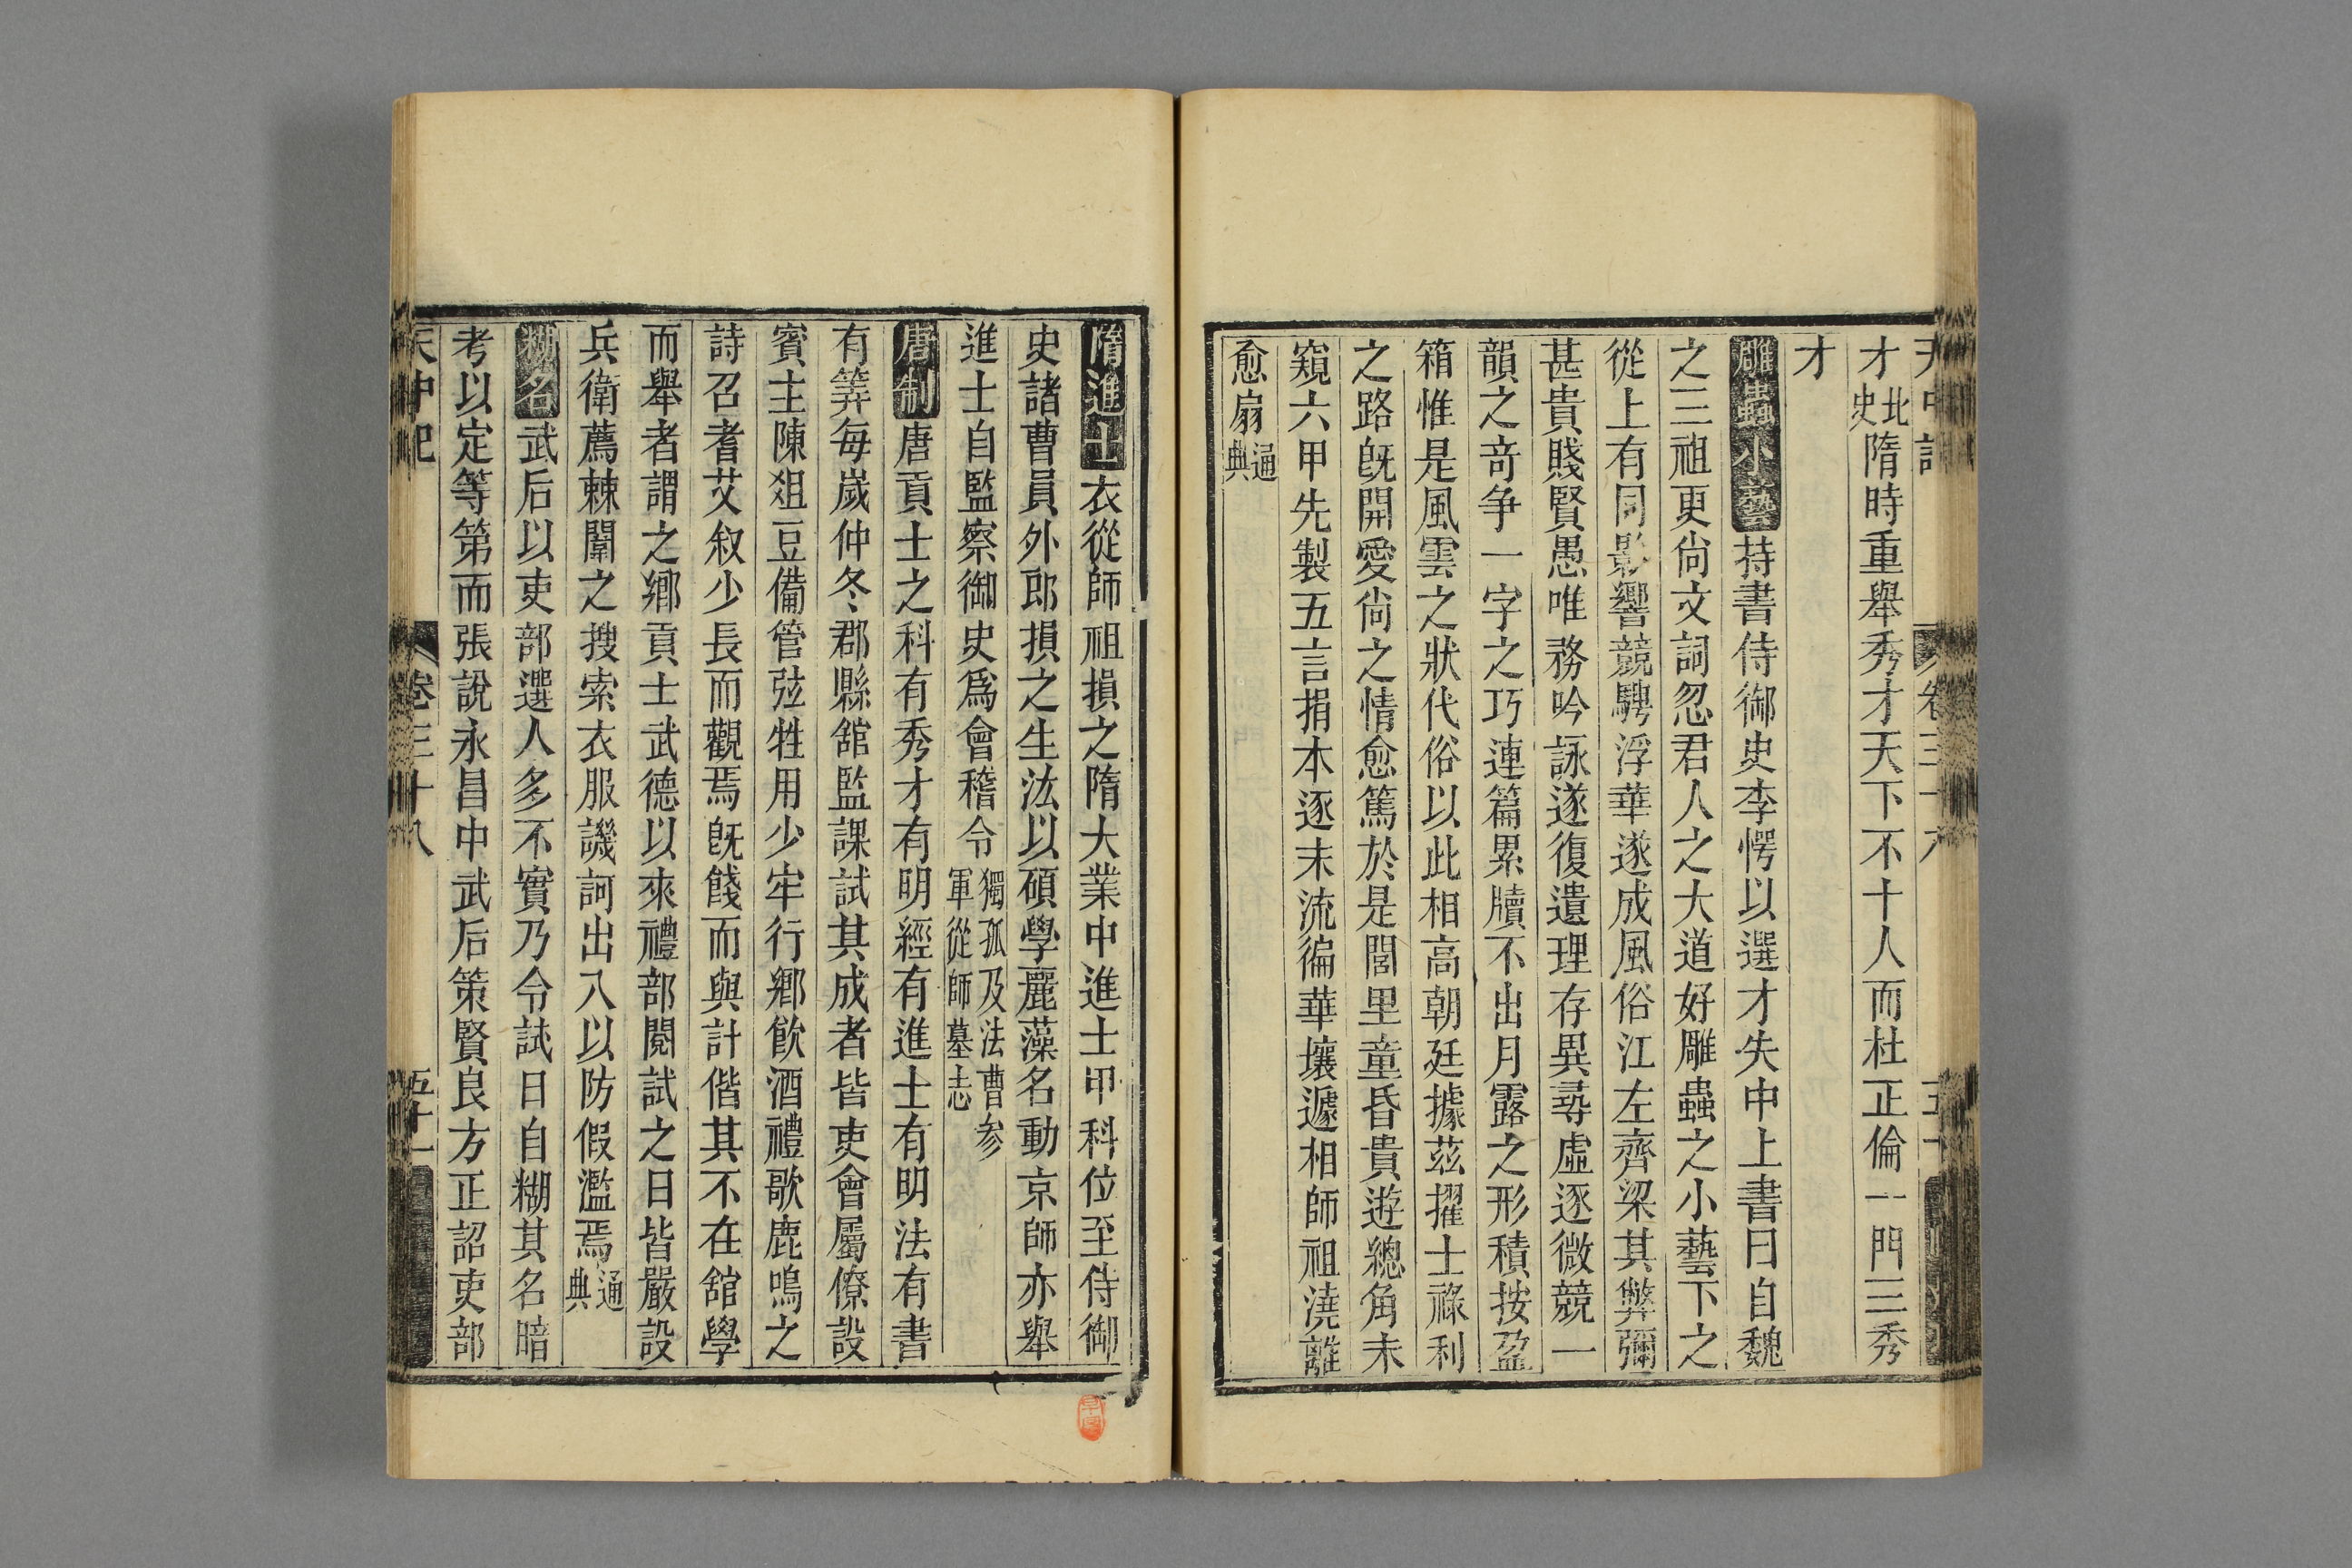 天中記 卷三十八 五十
才北史隋時重舉秀才天下不十人而杜正倫一門三秀
才
雕蟲小藝持書侍御史李愕以選才失中上書曰自魏
之三祖更尚文詞忽君人之大道好雕蟲之小藝下之
從上有同影響競騁浮華遂成風俗江左齊梁其弊彌
甚貴賤賢愚唯務吟詠遂復遺理存異尋虛逐微競一
韻之奇争一字之巧連篇累牘不出月露之形積按盈
箱惟是風雲之狀代俗以此相高朝廷據茲擢士祿利
之路旣開愛尚之情愈篤於是閭里童昏貴遊總角未
窺六甲先製五言捐本逐末流徧華壤遞相師祖澆離
愈扇通典
隋進士衣從師祖損之隋大業中進士甲科位至侍御
史諸曹員外郎損之生法以碩學麗藻名動京師亦舉
進士自監察御史爲會稽令獨孤及法曹参軍從師墓志
唐制唐貢士之科有秀才有明經有進士有明法有書
有筭每歲仲冬郡縣舘監課試其成者皆吏會屬僚設
賓主陳爼豆備管弦牲用少牢行鄉飲酒禮歌鹿鳴之
詩召耆艾叙少長而觀焉旣餞而與計偕其不在舘學
而舉者謂之鄉貢士武德以來禮部閱試之日皆嚴設
兵衛薦棘闈之搜索衣服譏訶出入以防假濫焉通典
糊名武后以吏部選人多不實乃令試日自糊其名暗
考以定等第而張說永昌中武后策賢良方正詔吏部
天中記 卷三十八 五十一